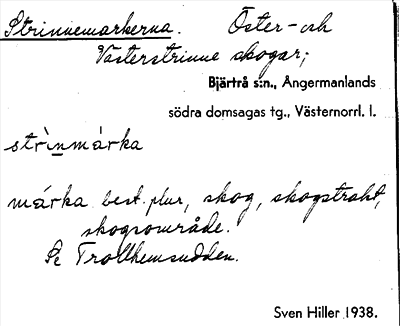 Strinnemarkerna. Öster- och
Västerstrinne skogar;
Bjärtrå s:n., Ångermanlands
södra domsagas tg., Västernorrl. l.
strìnmárka
márka best. plur, skog, skogstrakt,
skogsområde.
Se Trollhemsudden.
Sven Hiller 1938.